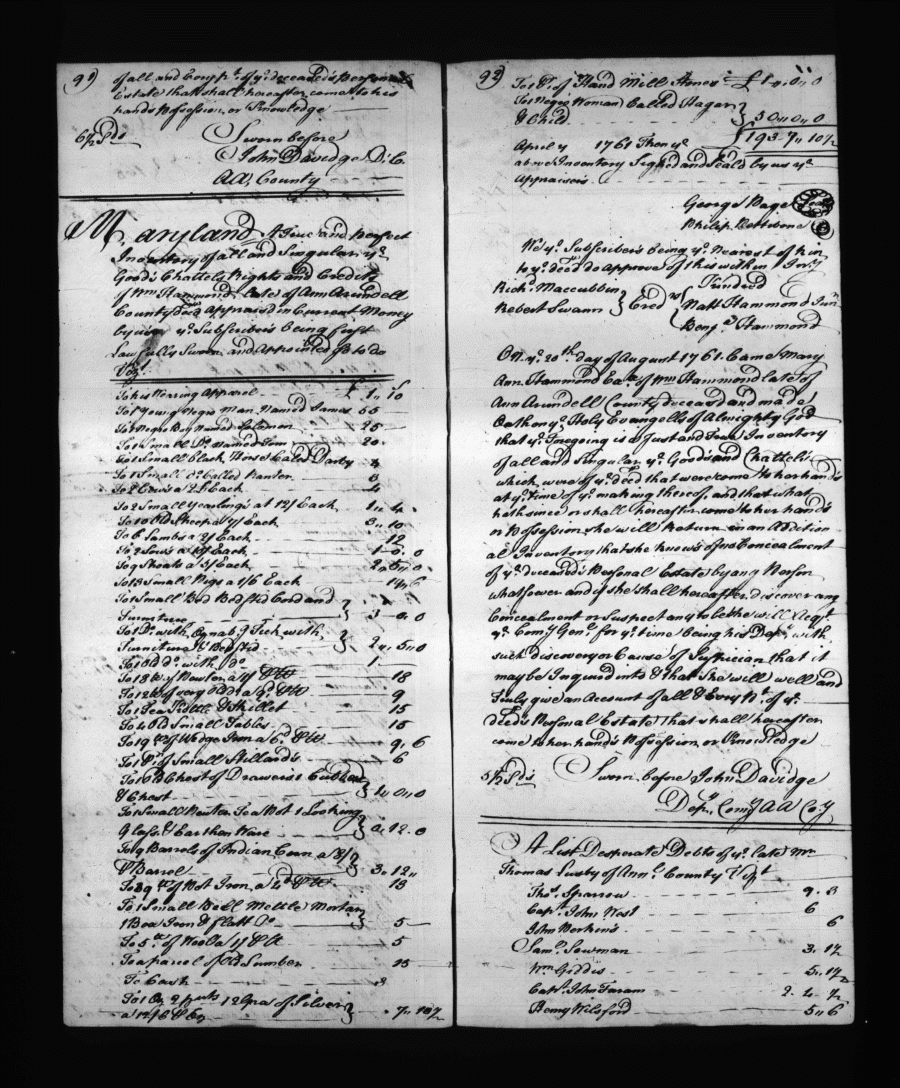 91)
of all and Every pt. of ye. deceased's Personal
Estate that shall hereafter come to his
hands Possession or Knowledge
Sworn before
John Davidge D: C.
AA, County
Maryland A True and Perfect
Inventory of all and Singular ye.
Goods Chattels Rights and Credits
of Wm Hammond late of Ann Arundell
County Deced Appraisd in Current Money
by us ye. Subscribers being first
Lawfully Sworn and Appointed so to do
Vizt.
To his Wearing Apparel 1,, 10
To 1 Young Negro Man Named James 55
To 1 Negro Boy Named Solomon 25
To 1 Small Do. Named Tom 20
To 1 Small black Horse Called Darby
To 1 Small do. Called Ranter
To 2 Cows a 2£ Each 4
To 2 Small Yearlings at 12/ Each 1,, 4
To 10 Old Sheep a 7/ Each 3,, 10
To 6 Lambs a 2/ Each 12
To 2 Sows a Each 1 - 0,, 0
To 9 Shoats a 5/ Each 2,, 5,, 0
To 13 Small Pigs a 1/6 Each 19,, 6
To 1 Small Bed Bedsted Cord and
Furniture } 3 - 0,, 0
To 1 Do. with Oznabg Tick with
Furniture & Bedsted } 2,, 5,, 0
To 1 Old do. with do. 1
To 18 lb of Pewter a 1/ 18
To 12 lb of very Old do. a 9d 9
To 1 Tea Kettle & Skillet 15
To 4 Old Small Tables 15
To 19 lb of Wedge Iron a 6d 9,, 6
To 1 Pr. of Small Stillards 6
To 1 Old Chest of Drawers 1 Cubbord
& Chest } 4,, 0,, 0
To 1 Small Pewter Tea Pot 1 Looking
Glass & Earthen Ware } 0,, 12,, 0
To 9 Barrels of Indian Corn a 8/
Barrel } 3,, 12,,
To 39 lb of Pot Iron a 4d 13
To 1 Small Bell Mettle Mortar
1 Box Iron & flatt Do. } 5
To 5 lb of Wool a 1/ 5
To a parcel of Old Lumber 15
To Cash
To 1 Oz 2 pwts 12 Gra of Silver
} 7,, 10½
92)
To 1 Pr. of Hand Mill Stones £ 1,, 0,, 0
To 1 Negro Woman Called Hagar
& Child } 30,, 0,, 0
193 7,, 10½
April 4 1761 Then ye.
above Inventory Signed and Seal'd by us ye.
Appraisers
George Page (Seal)
Philip Pettebone
We ye. Subscribers being ye. Nearest of kin
to ye. deced do approve of this within Invy
Richd. Maccubbin
Robert Swann } Credrs. { Kindred
Natt Hammond Junr
Benja Hammond
On ye. 20th day of August 1761 Came Mary
Ann Hammond Exx. of Wm Hammond late of
Ann Arundell County deceased and made
Oath on ye. Holy Evangells of Almighty God
that ye. Foregoing is a Just and True Inventory
of all and Singular ye. Goods and Chattells
which were of ye. deced that were come to her hand's
at ye. time of ye. making thereof, and that what
hath since or shall hereafter come to her hands
or Possession she will Return in an Addition
al Inventory that she knows of no Concealment
of ye. deceased's Personal Estate by any Person
whatsoever and if she shall hereafter discover any
Concealment or Suspect any to be she will Acqt.
ye. Comy Genl. for ye. time being his Depy with
such discovery or Cause of Suspicion that it
may be Inquired into & that she will well and
Truly give an Account of all & Every Pt. of ye.
Deced's Personal Estate that shall hereafter
come to her hand's Possession or Knowledge
Sworn before John Davidge
Depy. Comy AA Coy
A List Desperate Debts of ye. late Mr.
Thomas Lusby of Annl. County Vizt.
Thos. Sparrow 9. 8
Capt. John West 6
John 6
Saml. Sewman 3. 1½
Wm Giddis 5. 1½
Capt. John Taram 2. 4. ½
Benny Wilsford 5,, 6